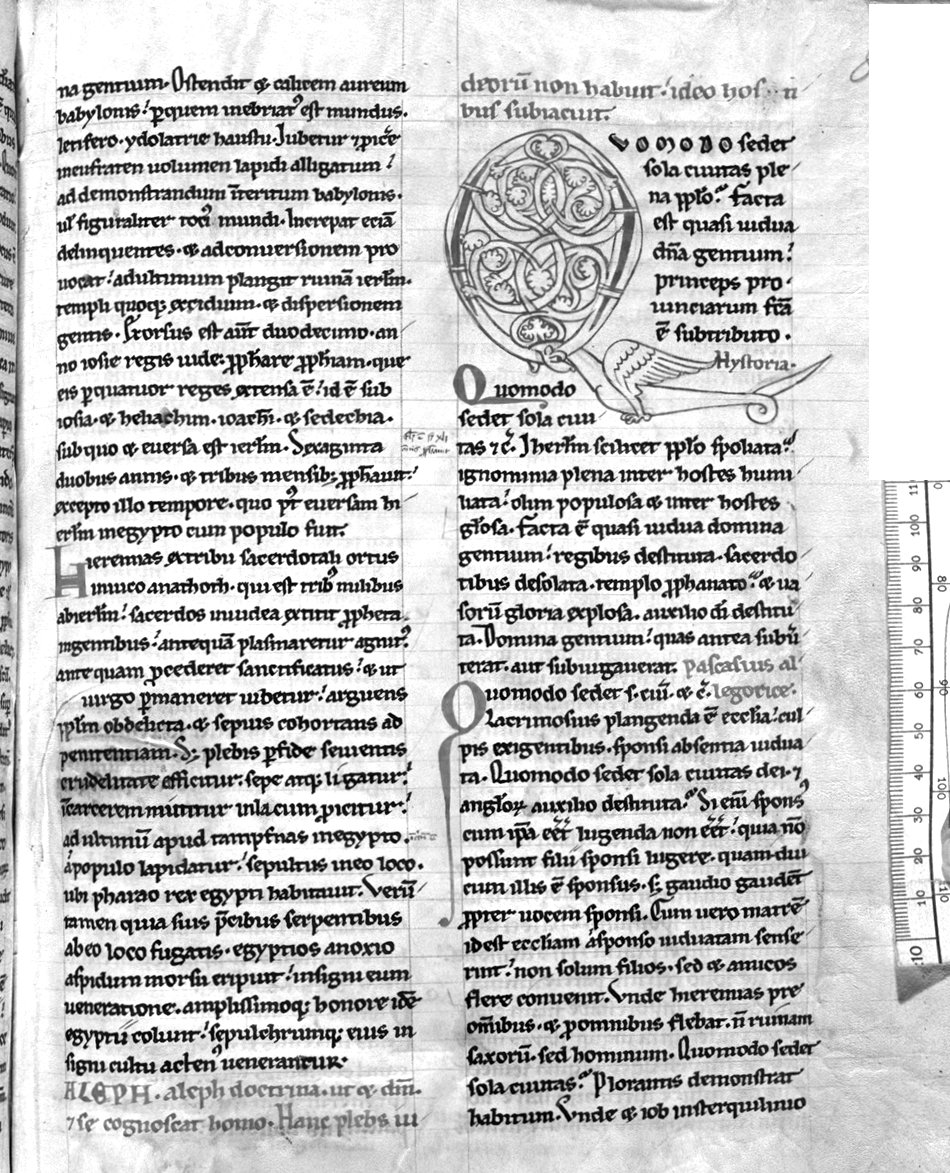 na gentium. Ostendit & calicem aureum
babylonis: ꝑquem inebriatꝰ est mundus.
letifero ydolatrie haustu. Iubetur ꝓicẽ
ineufraten uolumen lapidi alligatum
ad demonstrandum ĩteritum babylonis.
ul' figuraliter toci' mundi. Increpat eciã
delinquentes. & adconuersionem pro
uocat: adultimum plangit ruinã ierl'm.
templi quoq; excidium. & dispersionem
gentis. Exorsus est aut̃ duodecimo. an
no iosie regis iude: ꝓphare ꝓphiam. que
eis ꝑquatuor reges extensa ẽ: id ẽ sub
iosia. & heliachim. ioachĩ. & sedechia.
sub quo & euersa est ierl'm. Sexaginta
duobus annis. & tribus mensib; ꝓphauit:
excepto illo tempore. quo pꝰt euersam hi
erl'm inegypto cum populo fuit.
Hieremias extribu sacerdotali ortus
inuico anathoth. qui est trib' milibus
abierl'm: sacerdos iniudea extitit ꝓpheta.
ingentibus: antequã plasmaretur agnit'.
ante quam ꝓcederet sanctificatus: & ut
uirgo ꝑmaneret iubetur: arguens
ip̃lm obdelicta. & sepius cohortans ad
penitentiam. S; plebis ꝑfide seuientis
crudelitate efficitur: sepe atq; ligatur:
ĩcarcerem mittitur inlacum ꝓicitur:
ad ultimũ apud tampfnas inegypto.
apopulo lapidatur: sepultus ineo loco.
ubi pharao rex egypti habitauit. Verũ
tamen quia suis p̃cibus serpentibus
ab eo loco fugatis. egyptios anoxio
aspidum morsu eripuit: insigni eum
ueneratione. amplissimoq; honore idẽ
egyptii colunt: sepulchrumq; eius in
signi cultu actenꝰ uenerantur.
ALEPH. aleph doctrina. ut & dm̃.
⁊ se cognoscat homo. Hanc plebs iu
deorũ non habuit: ideo hos
bus subiacuit.
VOMODO sedet
sola ciuitas ple
na pp̃lo: facta
est quasi uidua
dñа gentium:
princeps pro
uinciarum fc̃a
ẽ subtributo.
Hystoria.
Quomodo
sedet sola ciui
tas ⁊ c̃. Iherl'm scilicet pp̃lo spoliata:
ignominia plena inter hostes humi
liata: olim populosa & inter hostes
gl'osa. Facta ẽ quasi uidua domina
gentium: regibus destituta. sacerdo
tibus desolata. templo ꝓphanato. & ua
sorũ gloria explosa. auxilio di destitu
ta. Domina gentium: quas antea subiũ
xerat. aut subiugauerat. Pascasius al
Quomodo sedet s. ciũ. & c̃. legorice.
Lacrimosius plangenda ẽ ecclia: cul
pis exigentibus. sponsi absentia uidua
ta. Quomodo sedet sola ciuitas dei. ⁊
angl'oꝝ auxilio destituta. Si eni spons'
cum ip̃a eet̃ lugenda non eet̃: quia nõ
possunt filii sponsi lugere. quam diu
cum illis ẽ sponsus. s; gaudio gaudet̃
ꝓpter uocem sponsi. Cum uero matrẽ
idest eccliam asponso uiduatam sense
rint: non solum filios. sed & amicos
flere conuenit. Vnde hieremias pre
om̃ibus. & ꝓomnibus flebat. ñ ruinam
saxorũ. sed hominum. Quomodo sedet
sola ciuitas. Plorantis demonstrat
habitum. Vnde & iob insterquilinio